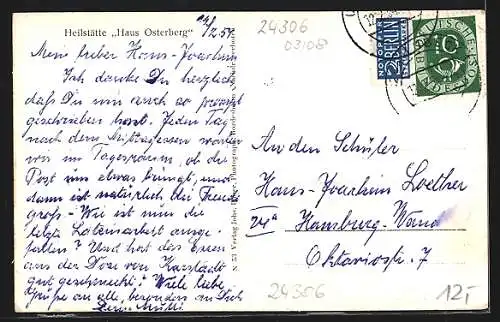 Heilstätte „Haus Osterberg"
24306
03108
NOTOPFER
2 BERLIN
STEUERMARKE
10
Mein lieber Hans-Joachim
Ich danke Dir herzlich
daß Du mir auch so prompt
geschrieben hast. Jeden Tag
nach dem Mittagessen warten
wir im Tagesraum, ob die
Post uns etwas bringt, und
dann ist natürlich die Freude
groß - Wie ist nun die
letzte Lateinarbeit ausge-
fallen? Und hat das Essen
aus der Dose von Karstadt
gut geschmeckt? Viele liebe
Grüße an alle, besonders an Dich
Deine Mutti
An den Schüler
Hans-Joachim Loether
24a Hamburg-Wand
Oktaviostr. 7
24306
12,-